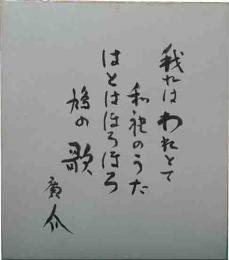 我れは われとて
和袍のうた
はとはほろほろ
鳩の 歌
廣介